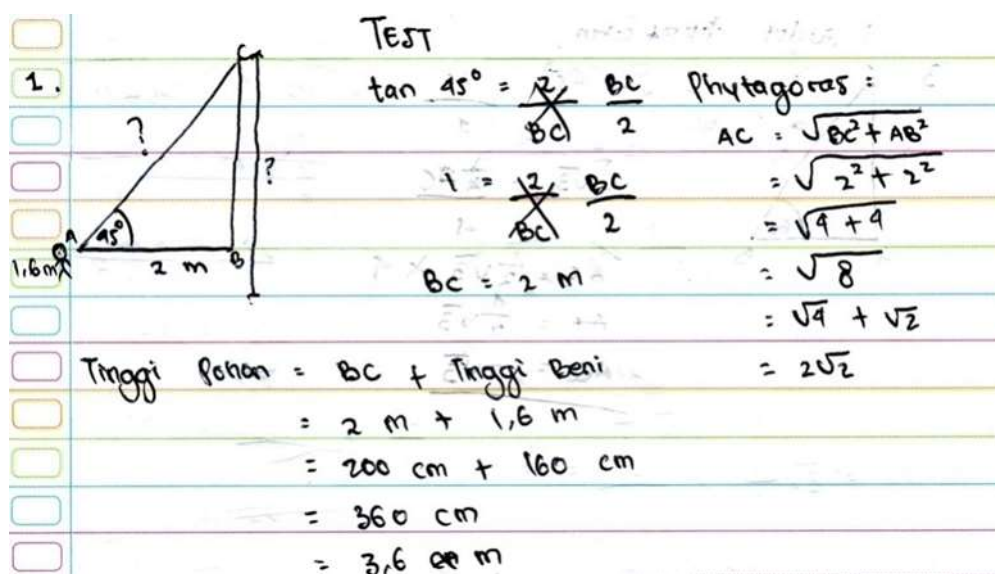 TEST
1.
C
?
?
A
45°
1,6 m
2 m
B
tan 45° = 2/BC BC/2
1 = 2/BC BC/2
BC = 2 m
Phytagoras :
AC = √BC² + AB²
= √2² + 2²
= √4 + 4
= √8
= √4 + √2
= 2√2
Tinggi Pohon = BC + Tinggi Beni
= 2 m + 1,6 m
= 200 cm + 160 cm
= 360 cm
= 3,6 m